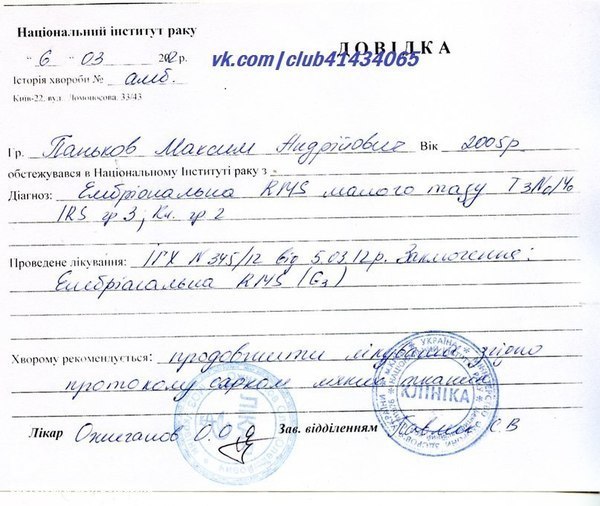 Національний інститут раку
"6" 03 2012р.
vk.com/club41434065
ДОВІДКА
Історія хвороби № амб.
Київ-22, вул. Ломоносова, 33/43
Гр. Паньков Максим Андрійович Вік 2005р
обстежувався в Національному Інституті раку з
Діагноз: Ембріональна RMS малого тазу T3N0M0
IRS гр 3, Кл. гр 2
Проведене лікування: ІГХ N 345/12 від 5.03.12р. Заключення:
Ембріональна RMS (G3)
Хворому рекомендується: продовжити лікування згідно
протоколу сарком мяких тканин
КЛІНІКА
Лікар Ожиганов О.О. Зав. відділенням С.В